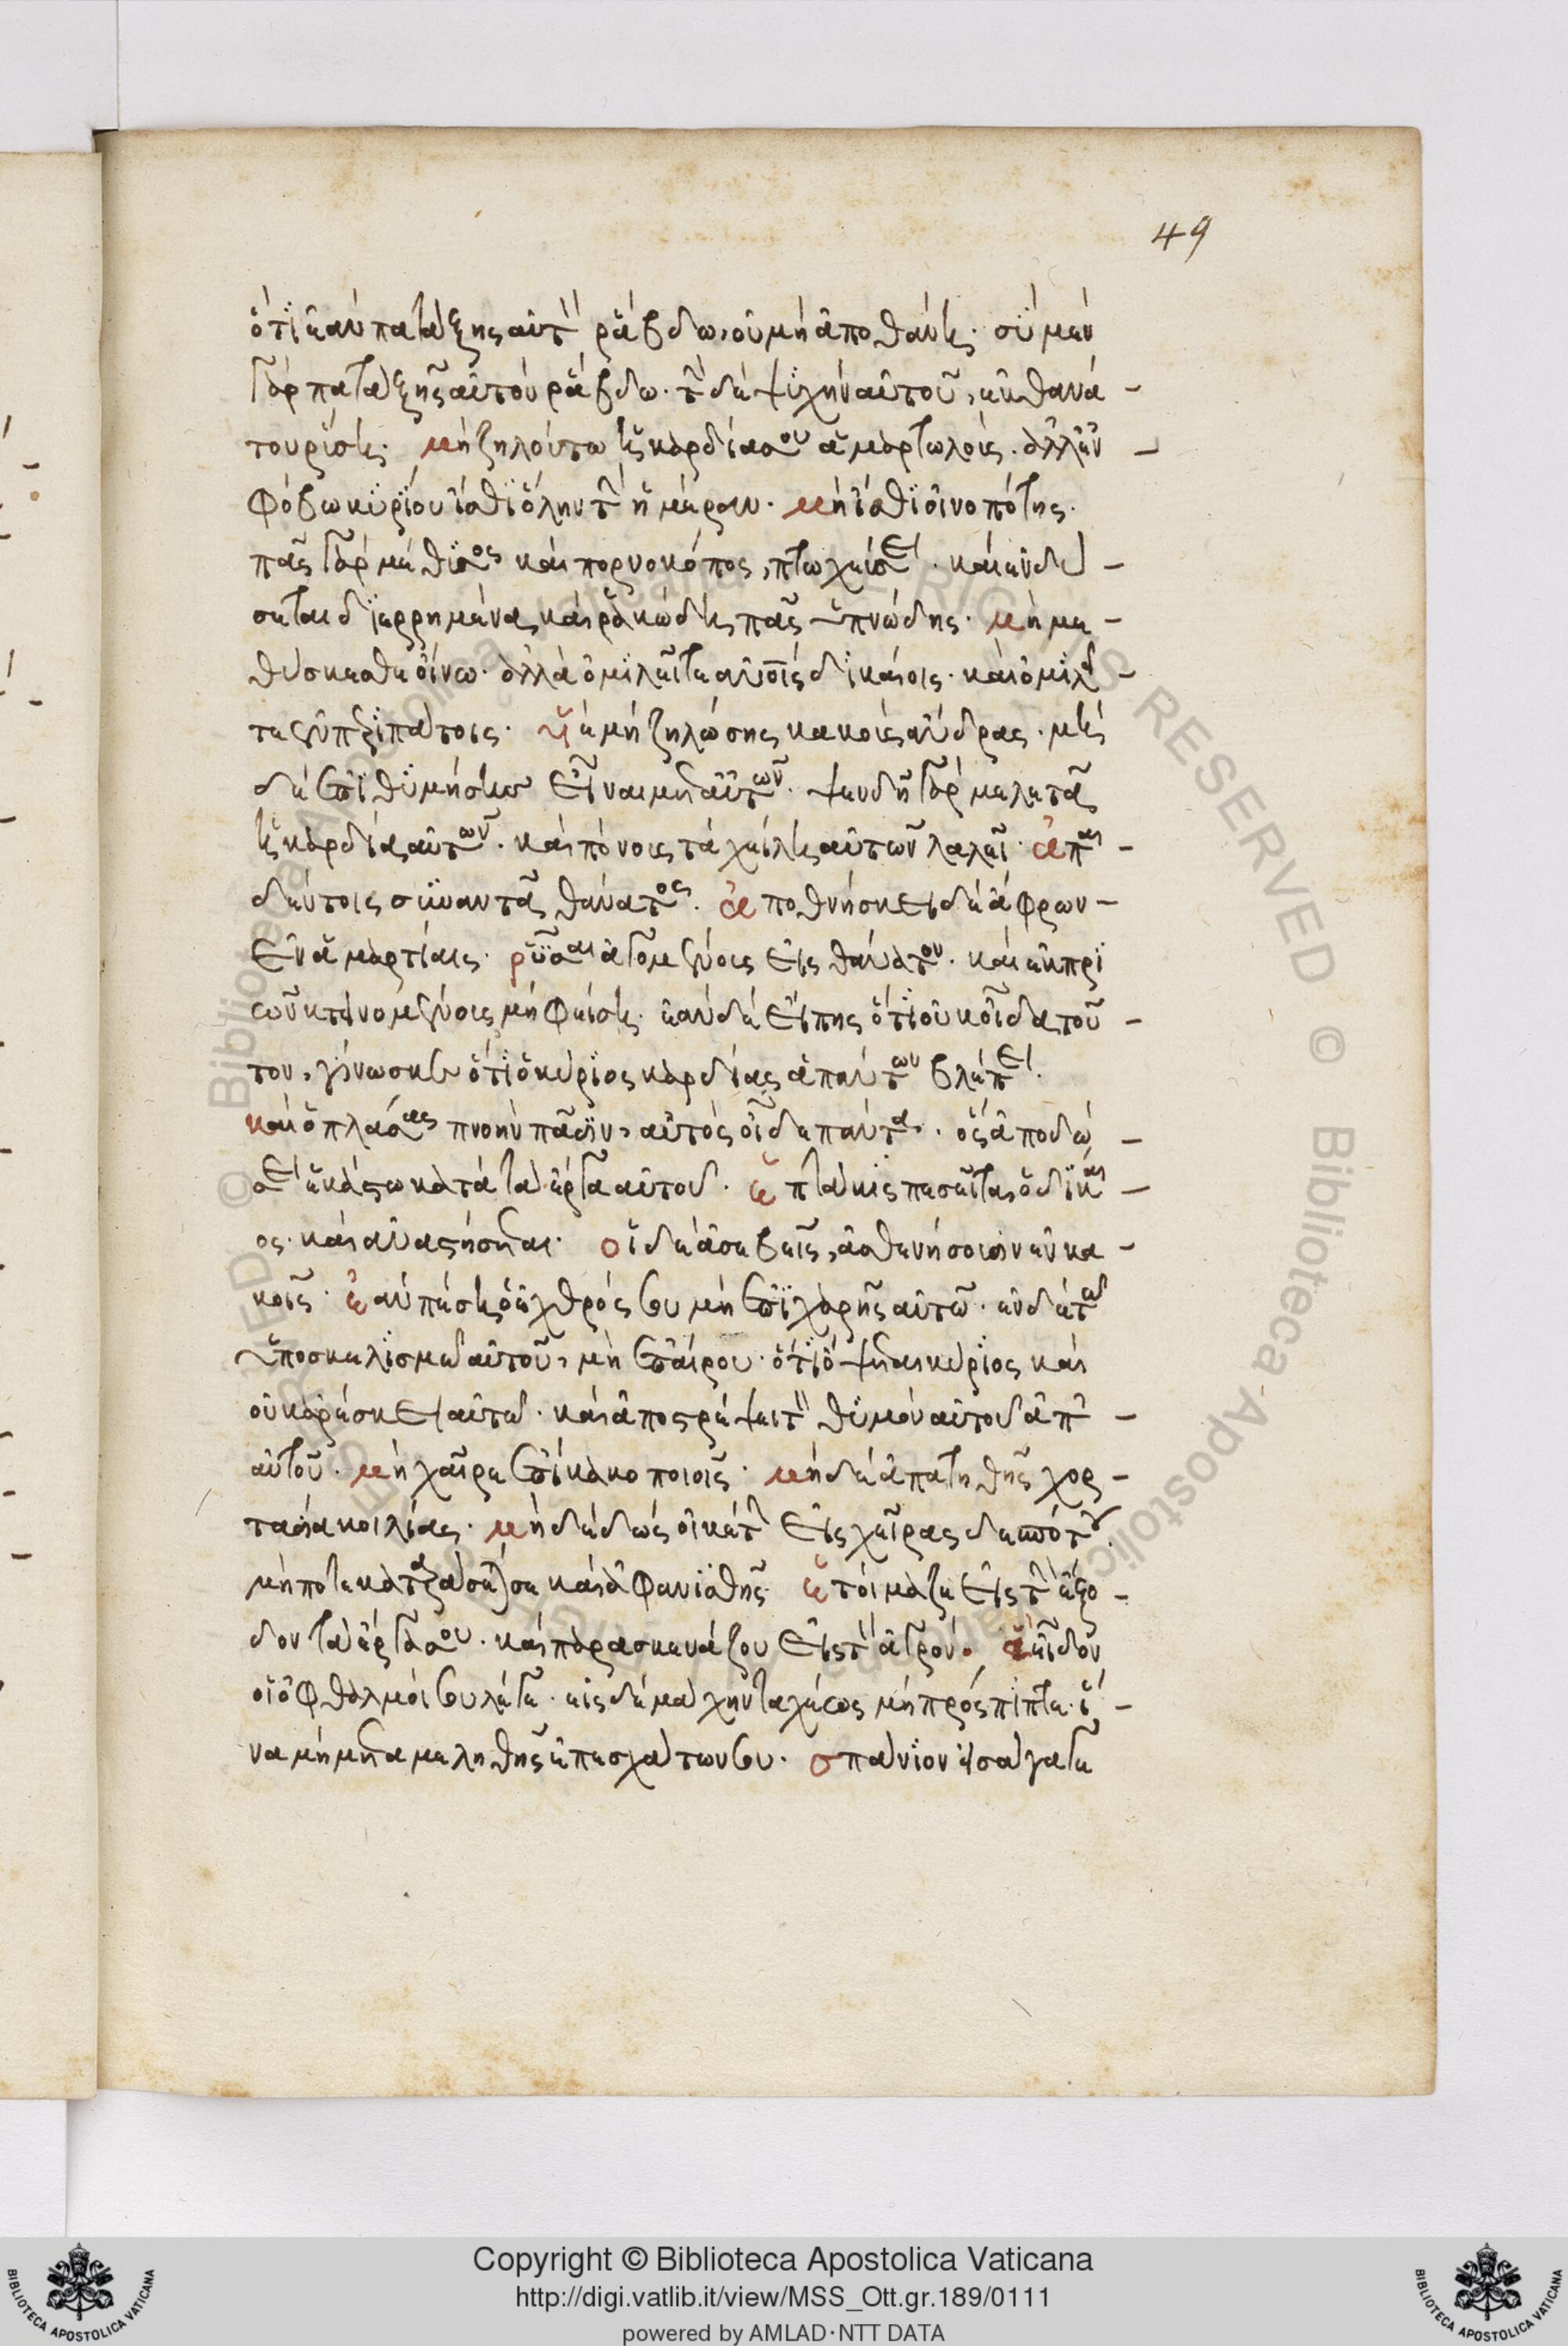 49
ὅτι ἐὰν πατάξης αὐτὸν ράβδω, οὐ μὴ ἀποθάνη· σὺ μὲν
γὰρ πατάξης αὐτὸν ράβδω· τὴν δὲ ψυχὴν αὐτοῦ, ἐκ θανά-
του ρύση· μὴ ζηλούτω ἡ καρδία σου ἁμαρτωλοὺς· ἀλλ' ἐν
φόβω κυρίου ἴσθι ὅλην τὴν ἡμέραν· μὴ ἴσθι οἰνοπότης·
πᾶς γὰρ μέθυσος καὶ πορνοκόπος, πτωχεύσει· καὶ ἐνδύ-
σεται διερρηγμένα, καὶ ρακώδη πᾶς ὑπνώδης· μὴ με-
θύσκεσθε οἴνω· ἀλλὰ ὁμιλεῖτε ἀνοις δικαίοις· καὶ ὁμιλεῖ-
τε ἐν περιπάτοις· υἱὲ μὴ ζηλώσης κακοὺς ἄνδρας· μὴ
δὲ ἐπιθυμήσης εἶναι μετ' αὐτῶν· ψευδῆ γὰρ μελετᾶ
ἡ καρδία αὐτῶν· καὶ πόνους τὰ χείλη αὐτῶν λαλεῖ· ἀπαι-
δεύτοις συναντᾶ θάνατος· ἀποθνήσκει δὲ ἄφρων
ἐν ἁμαρτίαις· ρῦσαι ἀγομένους εἰς θάνατον· καὶ ἐκπρί
ου κτεινομένους μὴ φείση· ἐὰν δὲ εἴπης ὅτι οὐκ οἶδα τοῦ-
τον, γίνωσκε ὅτι ὁ κύριος καρδίας ἁπάντων βλέπει·
καὶ ὁ πλάσας πνοὴν πᾶσιν, αὐτὸς οἶδε πάντα· ὃς ἀποδώ-
σει ἑκάστω κατὰ τὰ ἔργα αὐτοῦ· ἑπτάκις πεσεῖται ὁ δίκαι-
ος· καὶ ἀναστήσεται· οἱ δὲ ἀσεβεῖς, ἀσθενήσουσιν ἐν κα-
κοῖς· ἐὰν πέση ὁ ἐχθρός σου μὴ ἐπιχαρῆς αὐτῶ· ἐν δὲ τῶ
ὑποσκελίσματι αὐτοῦ, μὴ ἐπαίρου· ὅτι ὄψεται κύριος καὶ
οὐκ ἀρέσκει αὐτῶ· καὶ ἀποστρέψει τὸν θυμὸν αὐτοῦ ἀπ'
αὐτοῦ· μὴ χαῖρε ἐπὶ κακοποιοῖς· μηδὲ ἀπατηθῆς χορ-
τασία κοιλίας· μὴ δὲ δῶς οἰκέτην εἰς χεῖρας δεσπότου·
μήποτε καταράσηταί σε καὶ ἀφανισθῆς· ἑτοίμαζε εἰς τὴν ἔξο-
δον τὰ ἔργα σου· καὶ παρασκευάζου εἰς τὸν ἀγρόν· ἃ εἶδον
οἱ ὀφθαλμοί σου λέγε· εἰς δὲ μάχην ταχέως μὴ πρόσπιπτε· ἵ-
να μὴ μεταμεληθῆς ἐπ' ἐσχάτων σου· σπάνιον εἴσαγαγε
Copyright © Biblioteca Apostolica Vaticana
http://digi.vatlib.it/view/MSS_Ott.gr.189/0111
powered by AMLAD·NTT DATA